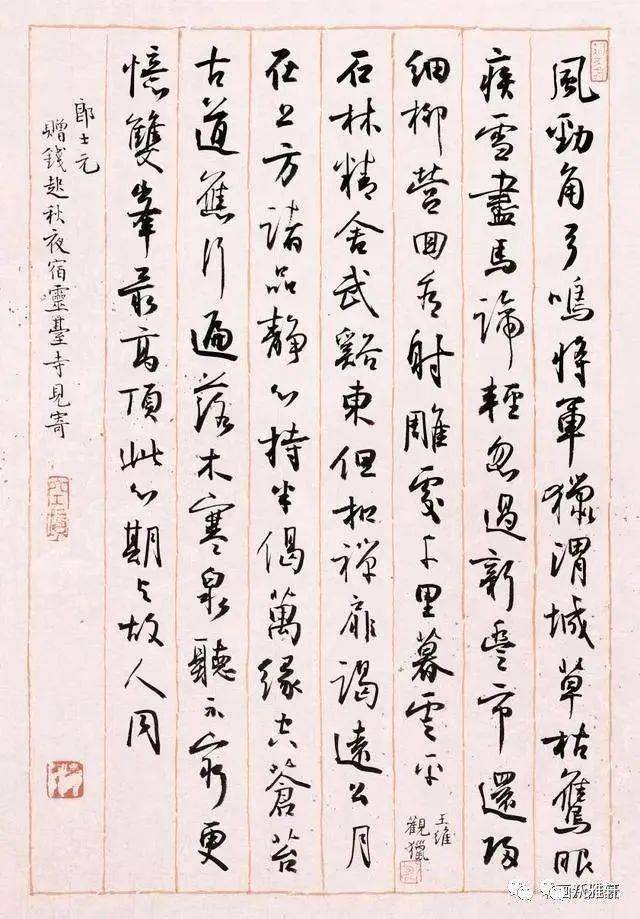 風勁角弓鳴將軍獵渭城草枯鷹眼
疾雪盡馬蹄輕忽過新豐市還歸
細柳營回看射雕處千里暮雲平
王維
觀獵
石林精舍武谿東但扣禪扉謁遠公月
在上方諸品靜心持半偈萬緣空蒼苔
古道應行遍落木寒泉聽不窮更
憶雙峯最高頂此心期与故人同
郎士元
贈錢起秋夜宿靈臺寺見寄